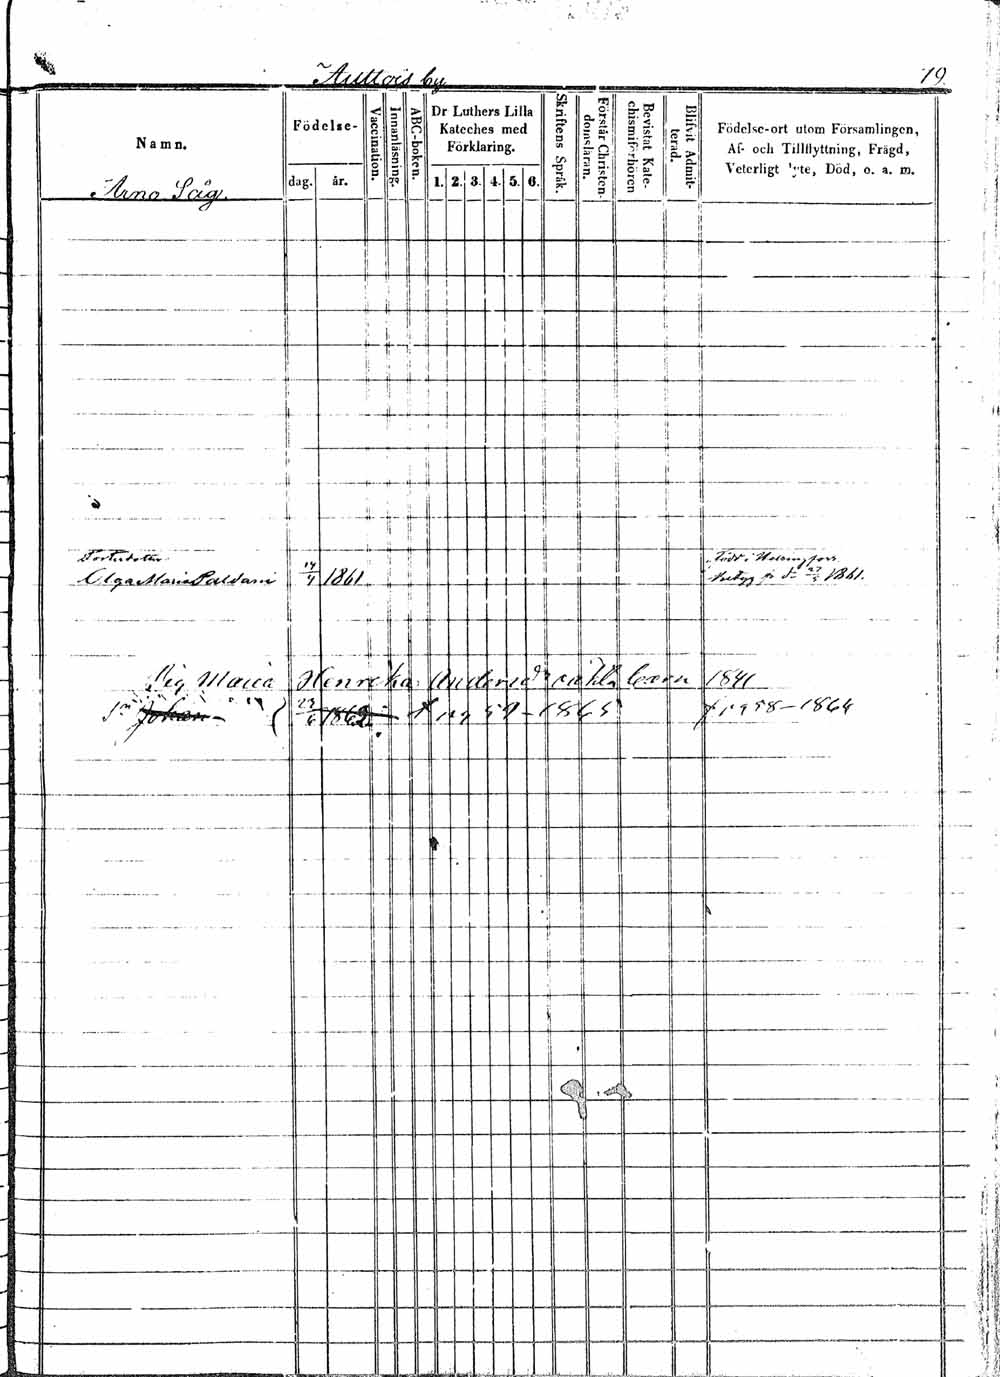 Auttois by 79.
Namn.
Arno Såg.
Födelse-
dag. år.
Vaccination.
Innanläsning.
ABC-boken.
Dr Luthers Lilla
Kateches med
Förklaring.
1. 2. 3. 4. 5. 6.
Skriftens Språk.
Förstår Christen-
domsläran.
Bevistat Kate-
chismiförhören
Blifvit Admit-
terad.
Födelse-ort utom Församlingen,
Af- och Tillflyttning, Frägd,
Veterligt te, Död, o. a. m.
Fosterdotter
Olga Maria Paldani 1861
Född i Helsingfors
1861.
Pig Maria Henrika Andersdr 1841
Sn Johan 1862 1865 1864